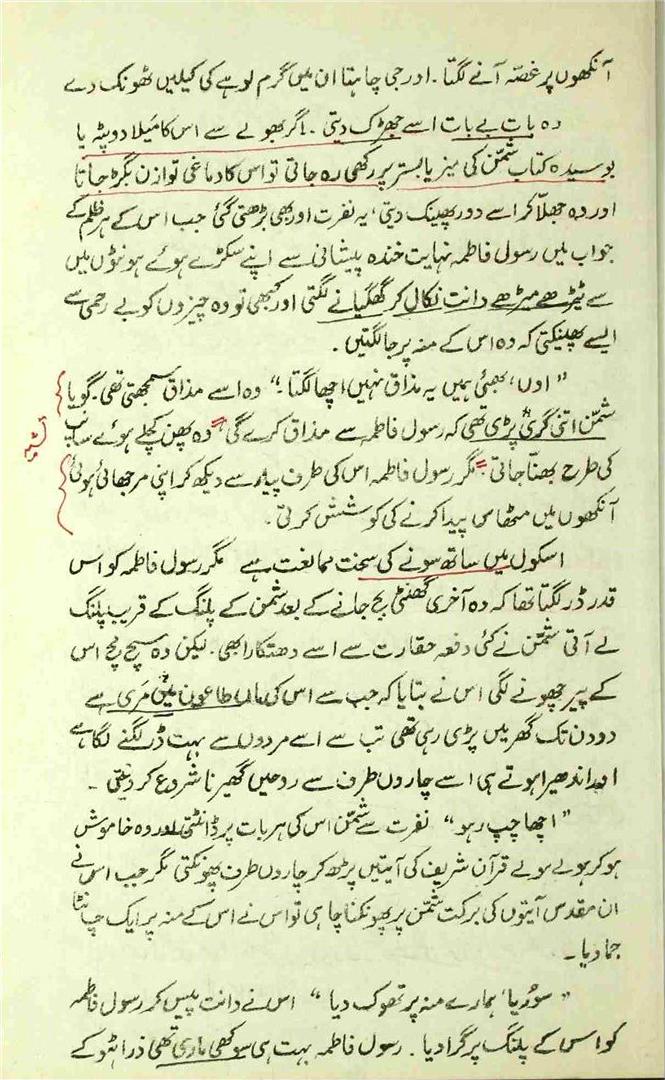 آنکھوں پر غصّہ آنے لگتا۔ اور جی چاہتا ان میں گرم لوہے کی کیلیں ٹھونک دے
وہ بات بے بات اسے جھڑک دیتی۔ اگر بھولے سے اس کا میلا دوپٹہ یا
بوسیدہ کتاب شمّن کی میز یا بستر پر رکھی رہ جاتی تو اس کا دماغی توازن بگڑ جاتا
اور وہ جھلّا کر اسے دور پھینک دیتی، یہ نفرت اور بھی بڑھتی گئی جب اس کے ہر ظلم کے
جواب میں رسول فاطمہ نہایت خندہ پیشانی سے اپنے سکڑے ہوئے ہونٹوں میں
سے ٹیڑھے میڑھے دانت نکال کر گھگیانے لگتی اور کبھی تو وہ چیزوں کو بے رحمی سے
ایسے پھینکتی کہ وہ اس کے منہ پر جا لگتیں۔
”اوں، بھئی ہمیں یہ مذاق نہیں اچھا لگتا۔“ وہ اسے مذاق سمجھتی تھی۔ گویا
شمّن اتنی گری پڑی تھی کہ رسول فاطمہ سے مذاق کرے گی وہ پھن کچلے ہوئے سانپ
کی طرح بھنّا جاتی مگر رسول فاطمہ اس کی طرف پیار سے دیکھ کر اپنی مرجھائی ہوئی
آنکھوں میں مٹھاس پیدا کرنے کی کوشش کرتی۔
اسکول میں ساتھ سونے کی سخت ممانعت ہے مگر رسول فاطمہ کو اس
قدر ڈر لگتا تھا کہ وہ آخری گھنٹی بج جانے کے بعد شمّن کے پلنگ کے قریب پلنگ
لے آتی شمّن نے کئی دفعہ حقارت سے اسے دھتکارا بھی۔ لیکن وہ سچ مچ اس
کے پیر چھونے لگی اس نے بتایا کہ جب سے اس کی ماں طاعون میں مری ہے
دو دن تک گھر میں پڑی رہی تھی تب سے اسے مردوں سے بہت ڈر لگنے لگا ہے
اور اندھیرا ہوتے ہی اسے چاروں طرف سے روحیں گھیرنا شروع کر دیتی۔
”اچھا چپ رہو“ نفرت سے شمّن اس کی ہر بات پر ڈانٹتی اور وہ خاموش
ہو کر ہولے ہولے قرآن شریف کی آیتیں پڑھ کر چاروں طرف پھونکتی مگر جب اس نے
ان مقدس آیتوں کی برکت شمّن پر پھونکنا چاہی تو اس نے اس کے منہ پر ایک چانٹا
جما دیا۔
”سؤریا، ہمارے منہ پر تھوک دیا“ اس نے دانت پیس کر رسول فاطمہ
کو اس کے پلنگ پر گرا دیا۔ رسول فاطمہ بہت ہی سوکھی ماری تھی ذرا ٹہو کے